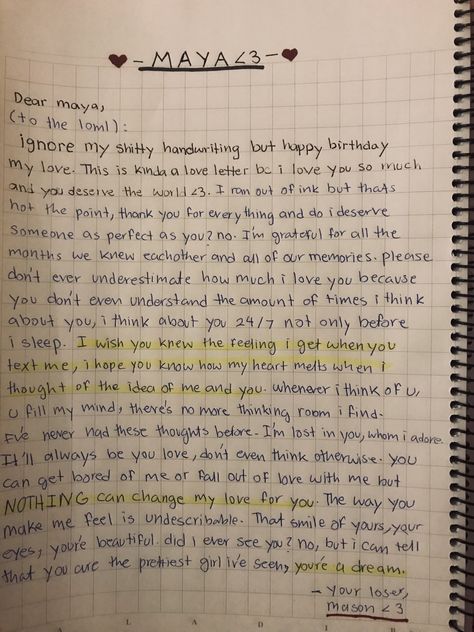 ♥ - MAYA<3 - ♥
Dear maya,
(to the loml):
ignore my shitty handwriting but happy birthday
my love. This is kinda a love letter bc i love you so much
and you deserve the world <3. I ran out of ink but thats
not the point, thank you for everything and do i deserve
someone as perfect as you? no. I'm grateful for all the
months we knew eachother and all of our memories. please
don't ever underestimate how much i love you because
you don't even understand the amount of times i think
about you, i think about you 24/7 not only before
i sleep. I wish you knew the feeling i get when you
text me, i hope you know how my heart melts when i
thought of the idea of me and you. whenever i think of u,
u fill my mind, there's no more thinking room i find.
I've never had these thoughts before. I'm lost in you, whom i adore.
It'll always be you love, don't even think otherwise. you
can get bored of me or fall out of love with me but
NOTHING can change my love for you. The way you
make me feel is undescribable. That smile of yours, your
eyes, you're beautiful. did I ever see you? no, but i can tell
that you are the prettiest girl i've seen, you're a dream.
- your loser,
mason <3
L A D I